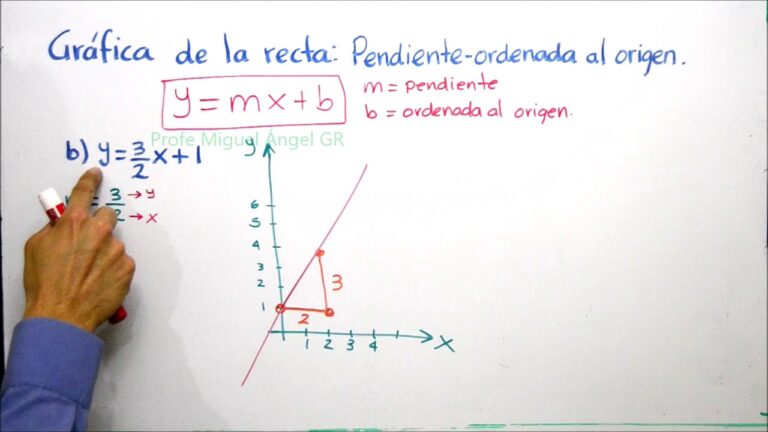 Gráfica de la recta: Pendiente-ordenada al origen.
y = mx + b
m = pendiente
b = ordenada al origen.
Profe Miguel Ángel GR
b) y = 3/2 x + 1
= 3/2
→ y
→ x
y
6
5
4
3
2
1
3
2
1 2 3 4
x